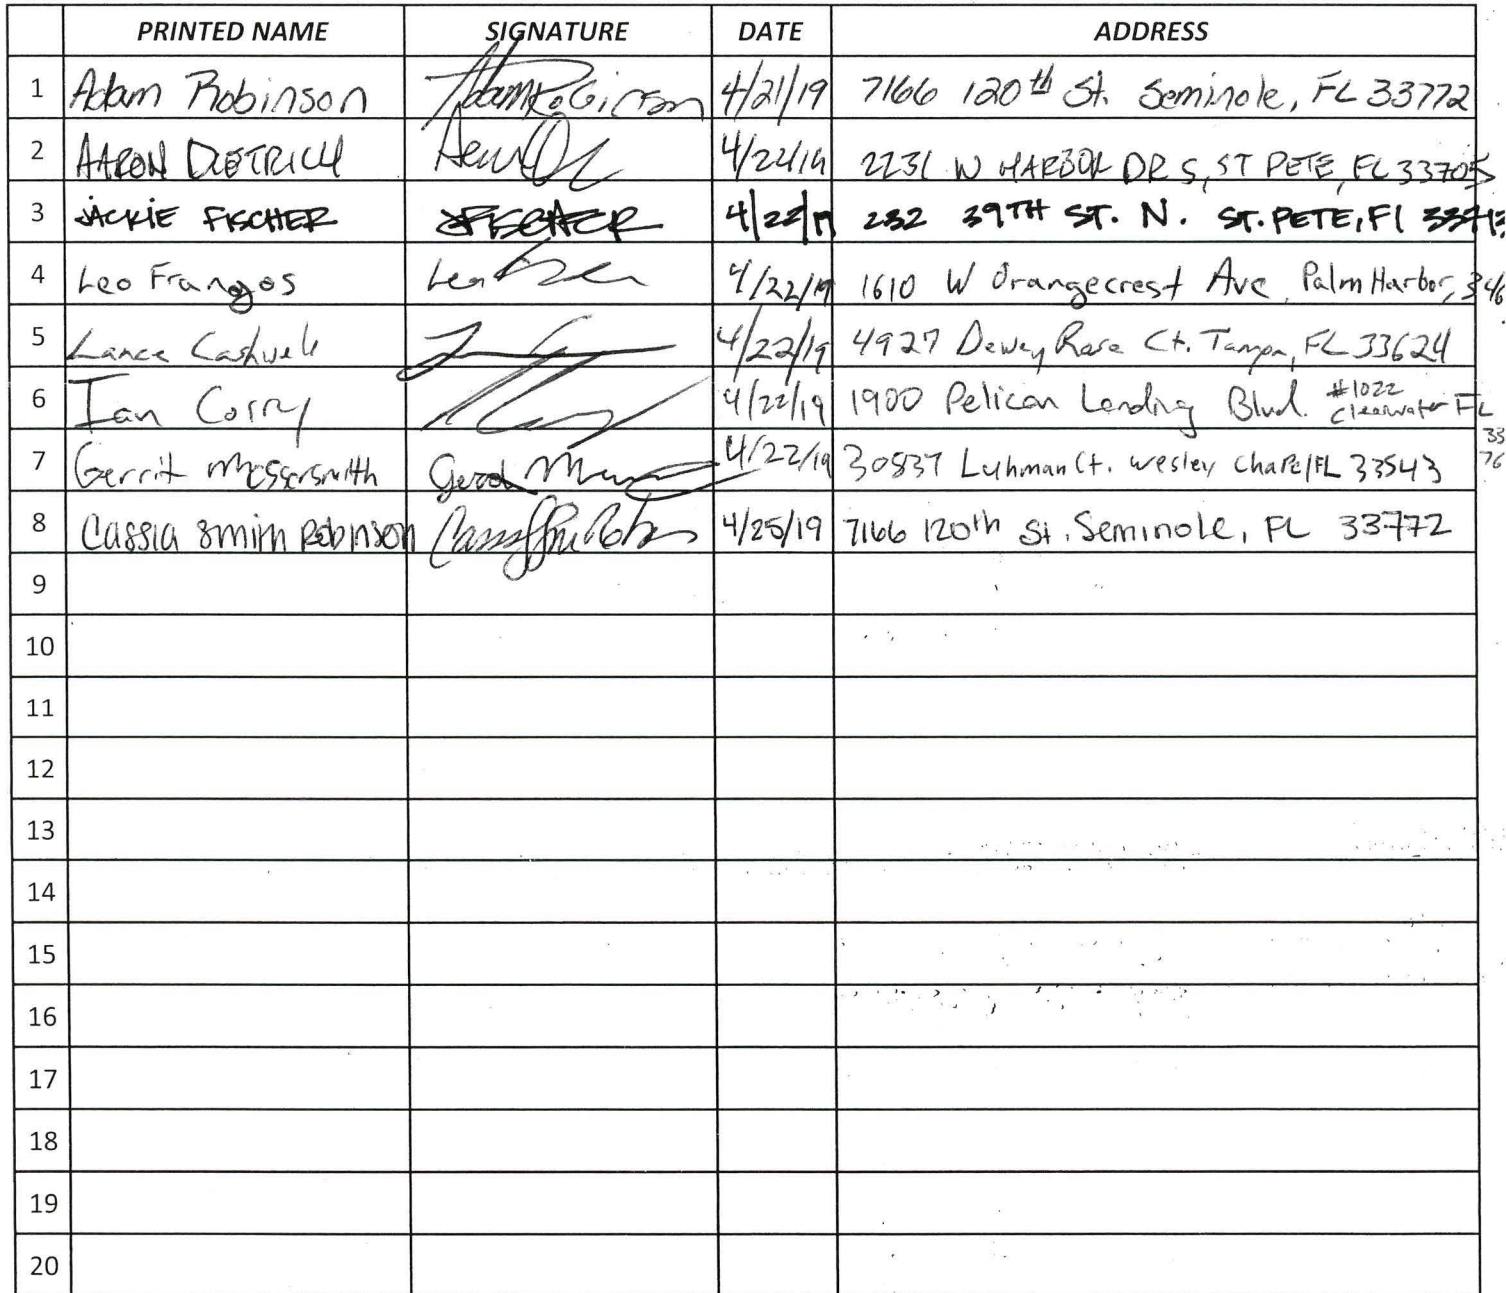 PRINTED NAME SIGNATURE DATE ADDRESS
1 Adam Robinson Adam Robinson 4/21/19 7166 120th St. Seminole, FL 33772
2 AARON DIETRICH 4/22/19 2231 W HARBOR DR S, ST PETE, FL 33705
3 JACKIE FISCHER JFISCHER 4/22/19 232 39TH ST. N. ST. PETE, Fl 33713
4 Leo Frangos Leo 4/22/19 1610 W Orangecrest Ave Palm Harbor, 346
5 Lance Cashwell 4/22/19 4927 Dewey Rose Ct. Tampa, FL 33624
6 Ian Corry 4/22/19 1900 Pelican Landing Blvd. #1022 Clearwater FL 3376
7 Gerrit Messersmith 4/22/19 30837 Luhman Ct. Wesley Chapel FL 33543
8 Cassia Smith Robinson 4/25/19 7166 120th St. Seminole, FL 33772
9
10
11
12
13
14
15
16
17
18
19
20